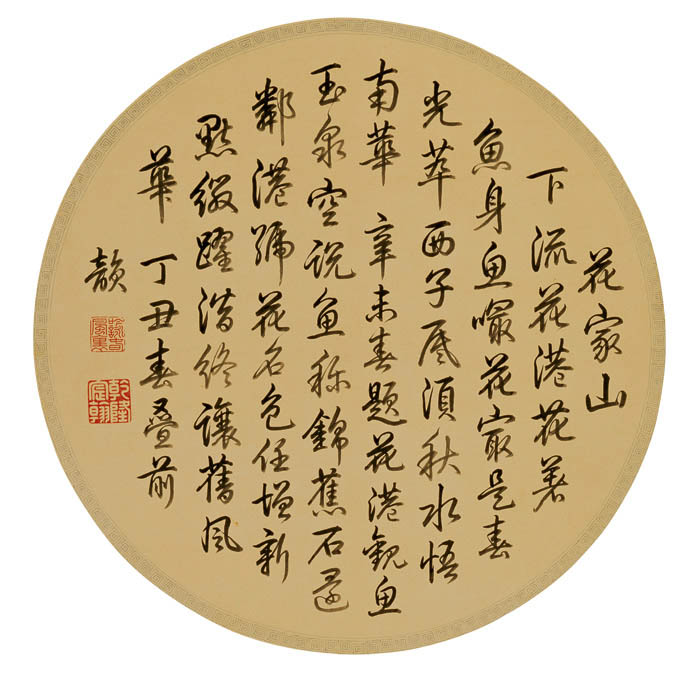 花家山
下流花港花著
魚身魚嘬花㝡是春
光萃西子底須秋水悟
南華 辛未春題花港觀魚
玉泉空說魚稱錦蕉石還
鄰港號花名色任增新
點綴躍潛終讓舊風
華 丁丑春疊前
韻
乾隆宸翰